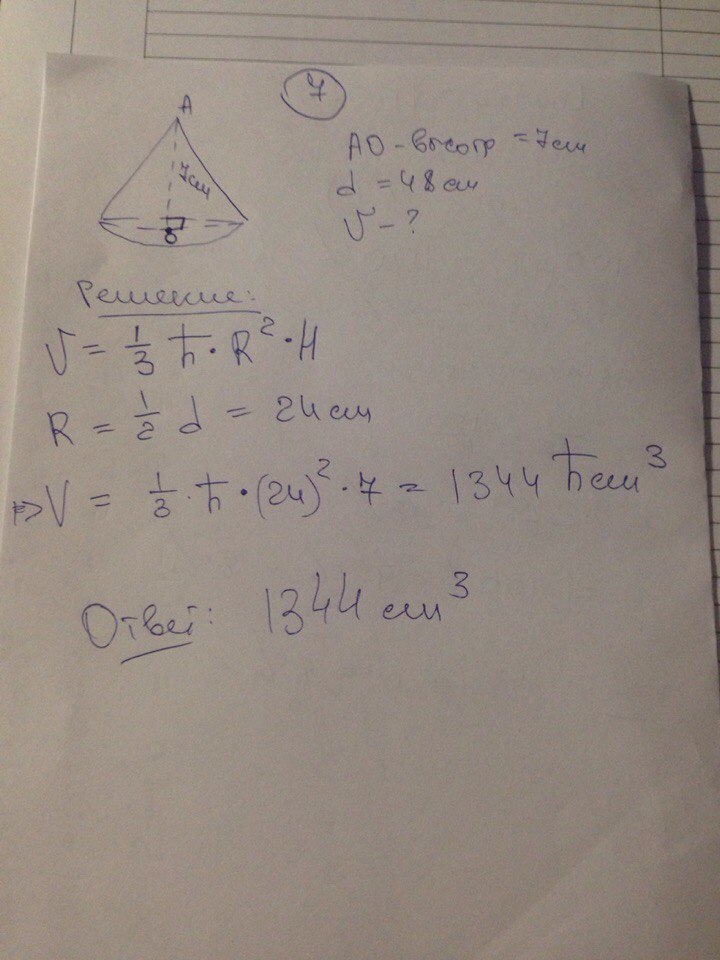 7
A
7см
O
AO - высота = 7см
d = 48 см
V - ?
Решение:
V = 1/3 π · R² · H
R = 1/2 d = 24 см
⇒ V = 1/3 · π · (24)² · 7 = 1344 π см³
Ответ: 1344 см³